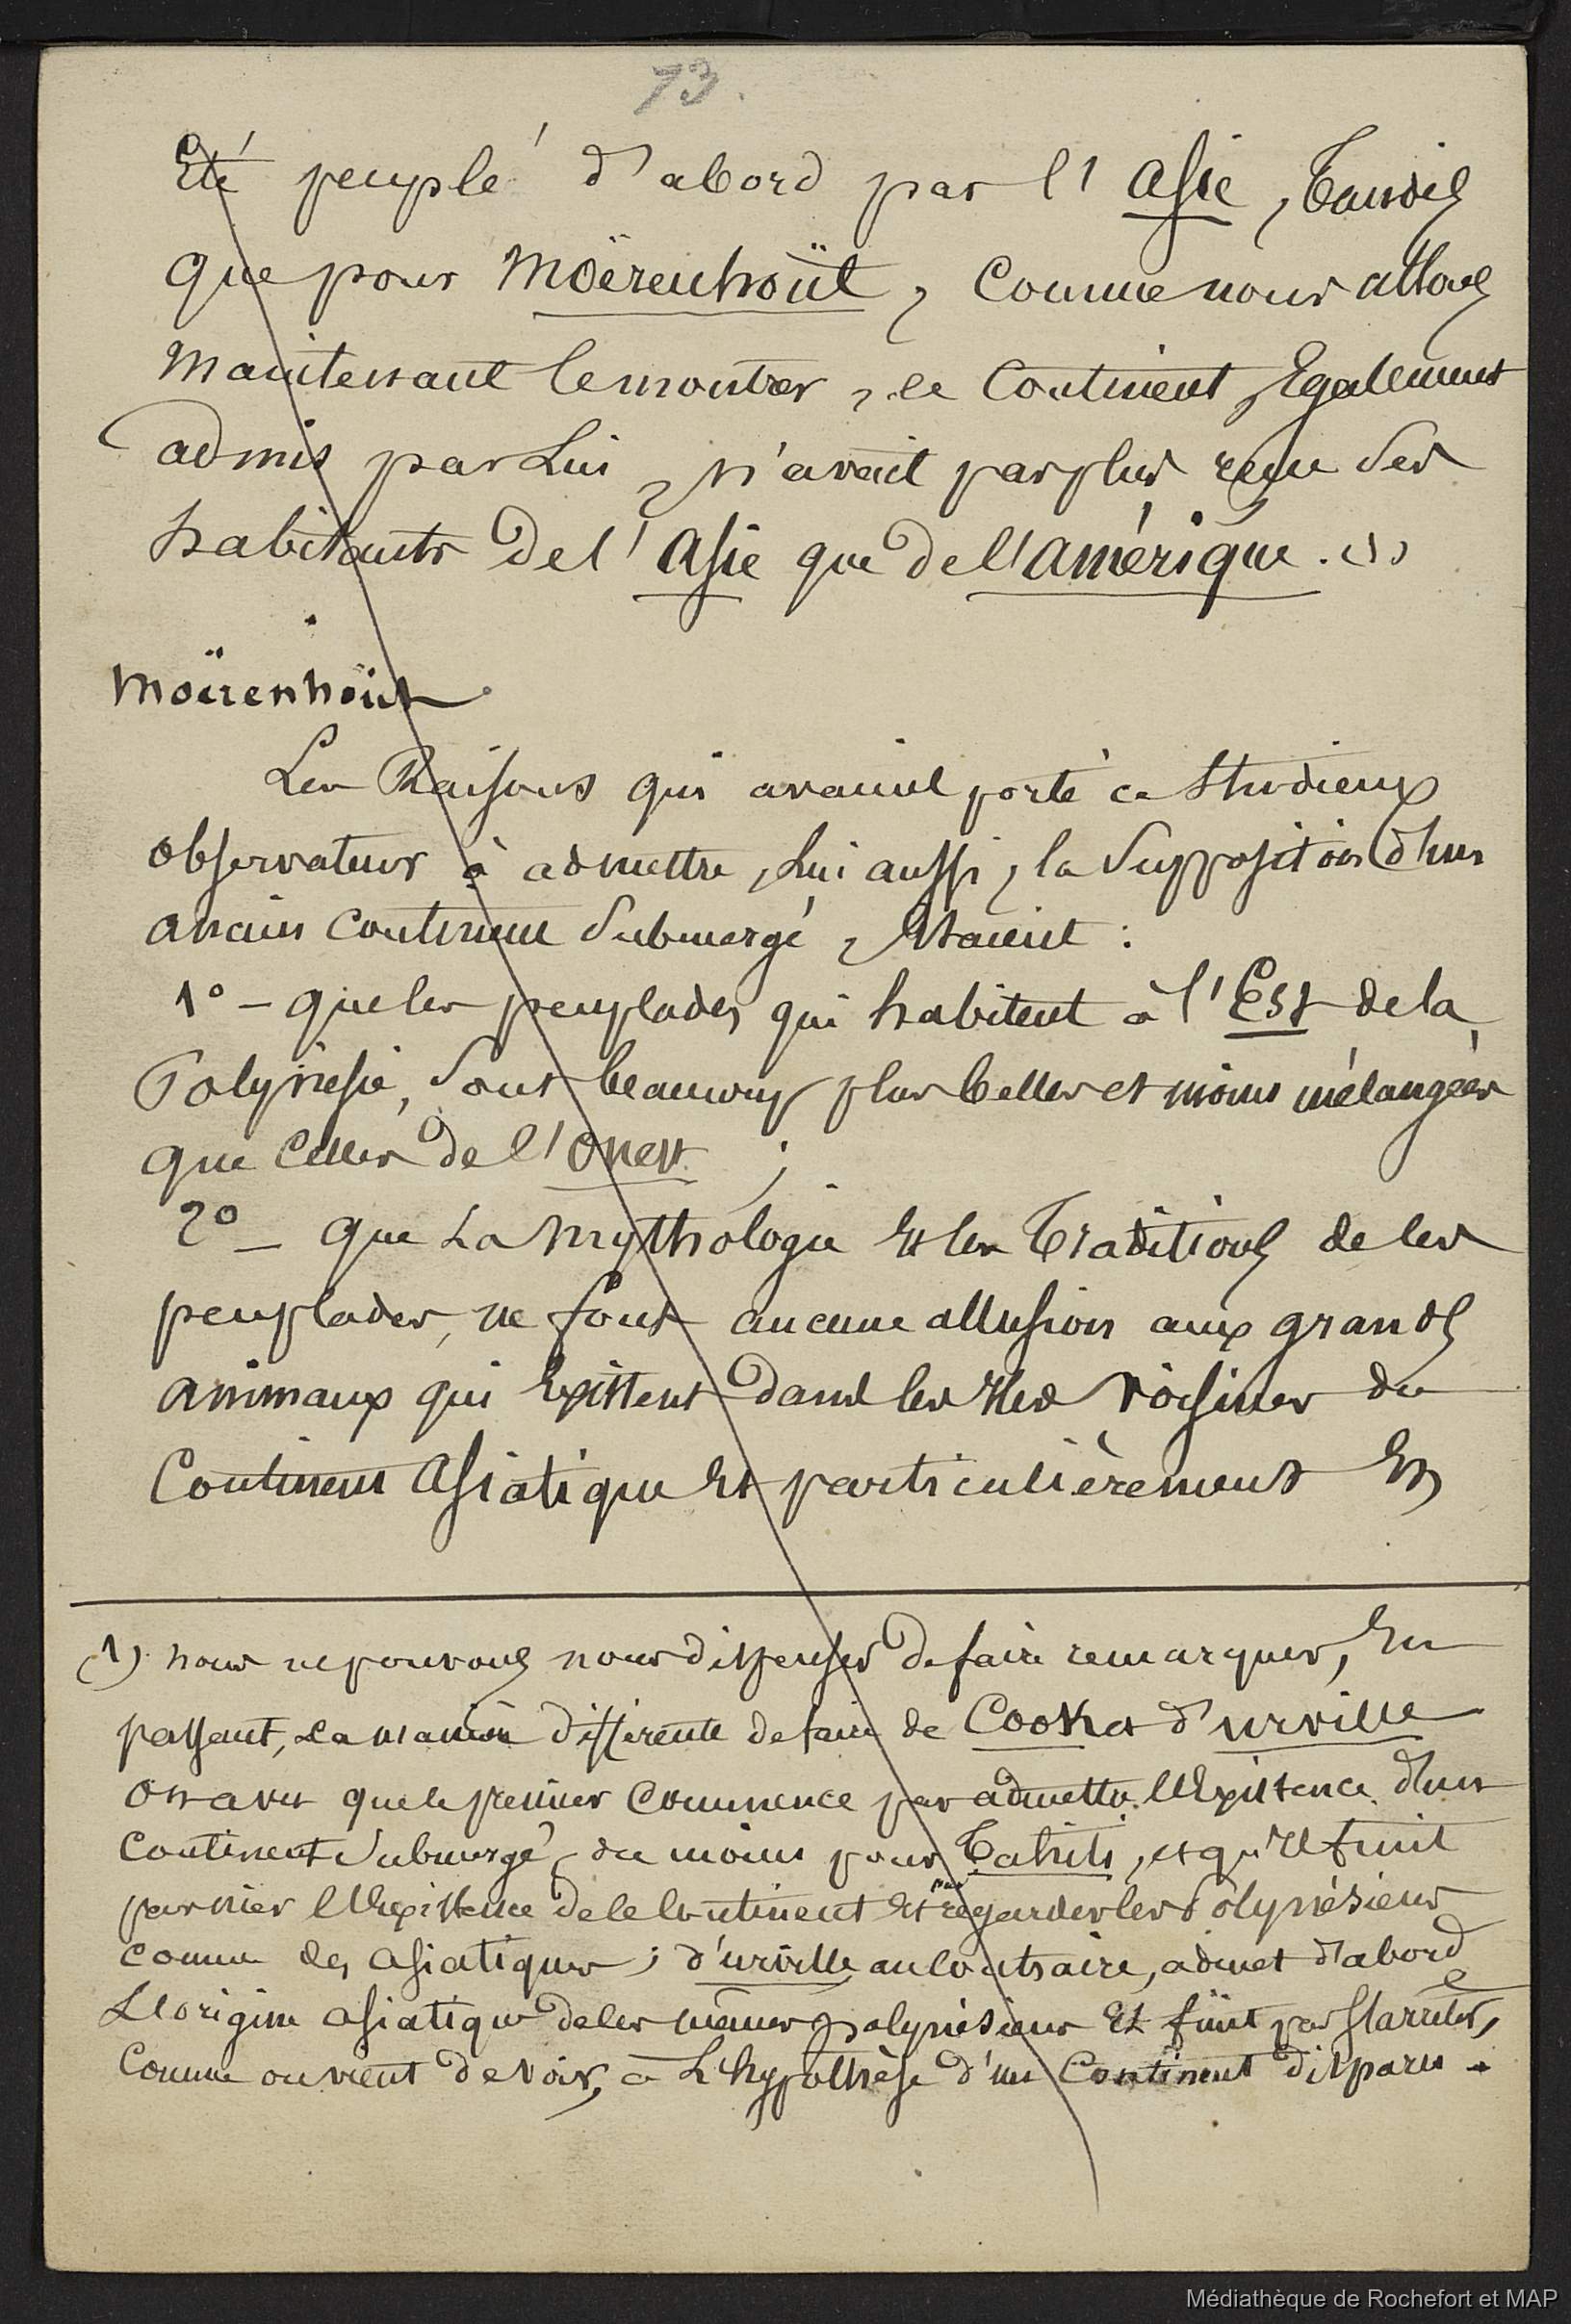 73.
Eté peuplé d'abord par l'Asie, Tandis
que pour Moërenhoüt, comme nous allons
maintenant le montrer, ce Continent, Également
admis par Lui, n'avait pas plus reçu ses
habitants de l'Asie que de l'Amérique. (1)
Moërenhoüt
Les Raisons qui avaient porté ce studieux
observateur à admettre, lui aussi, la supposition d'un
ancien continent submergé, Etaient :
1° - que les peuplades qui habitent à l'Est de la
Polynésie, sont beaucoup plus belles et moins mélangées
que celles de l'Ouest ;
2° - que La mythologie Et les Traditions de ces
peuplades, ne font aucune allusion aux grands
animaux qui Existent dans les Iles voisines du
Continent Asiatique Et particulièrement En
(1) nous ne pouvons nous dispenser de faire remarquer, En
passant, la manière différente de faire de Cook et d'Urville
On a vu que le premier commence par admettre l'Existence d'un
continent submergé, du moins pour Tahiti, et qu'Il finit
par nier l'Existence de ce Continent Et par regarder les Polynésiens
comme des Asiatiques ; d'Urville au Contraire, admet d'abord
L'origine asiatique de ces mêmes polynésiens Et finit par s'arrêter,
Comme on vient de voir, à L'hypothèse d'un Continent disparu.
Médiathèque de Rochefort et MAP